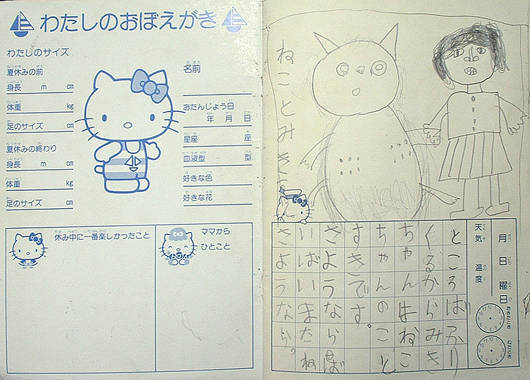 わたしのおぼえがき
わたしのサイズ
夏休みの前
身長 m cm
体重 kg
足のサイズ cm
夏休みの終わり
身長 m cm
体重 kg
足のサイズ cm
名前
おたんじょう日
年 月 日
星座 座
血液型 型
好きな色
好きな花
休み中に一番楽しかったこと
ママから
ひとこと
ねことみき
月 日 曜日
天気 温度
くるからみき
ちゃんはねこ
ちゃんのこと
すきです。
さようならば
いばいまたね
さようなら。